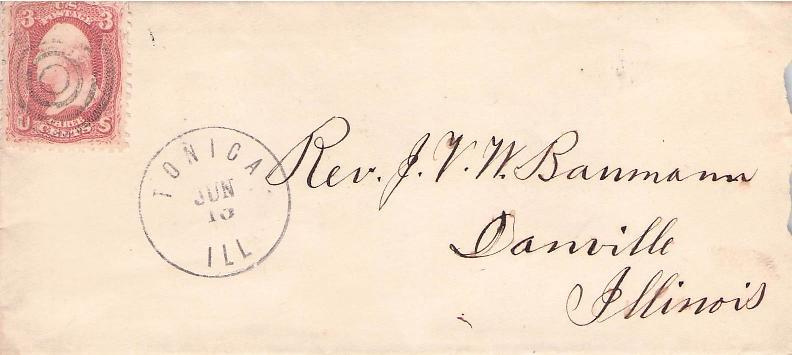 3 U.S. 3
POSTAGE
THREE
U CENTS S
TONICA
JUN
13
ILL
Rev. J. V. W. Baumann
Danville
Illinois